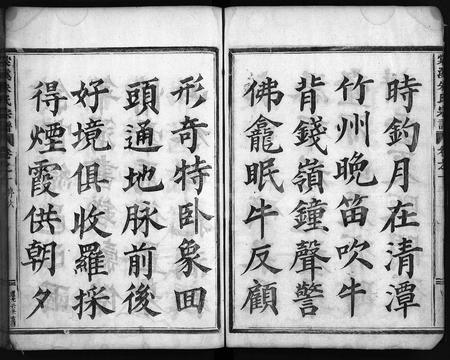 時釣月在清潭
竹州晚笛吹牛
背錢嶺鐘聲警
佛龕眠牛反顧
形奇特卧象回
頭通地脉前後
好境俱收羅採
得煙霞供朝夕